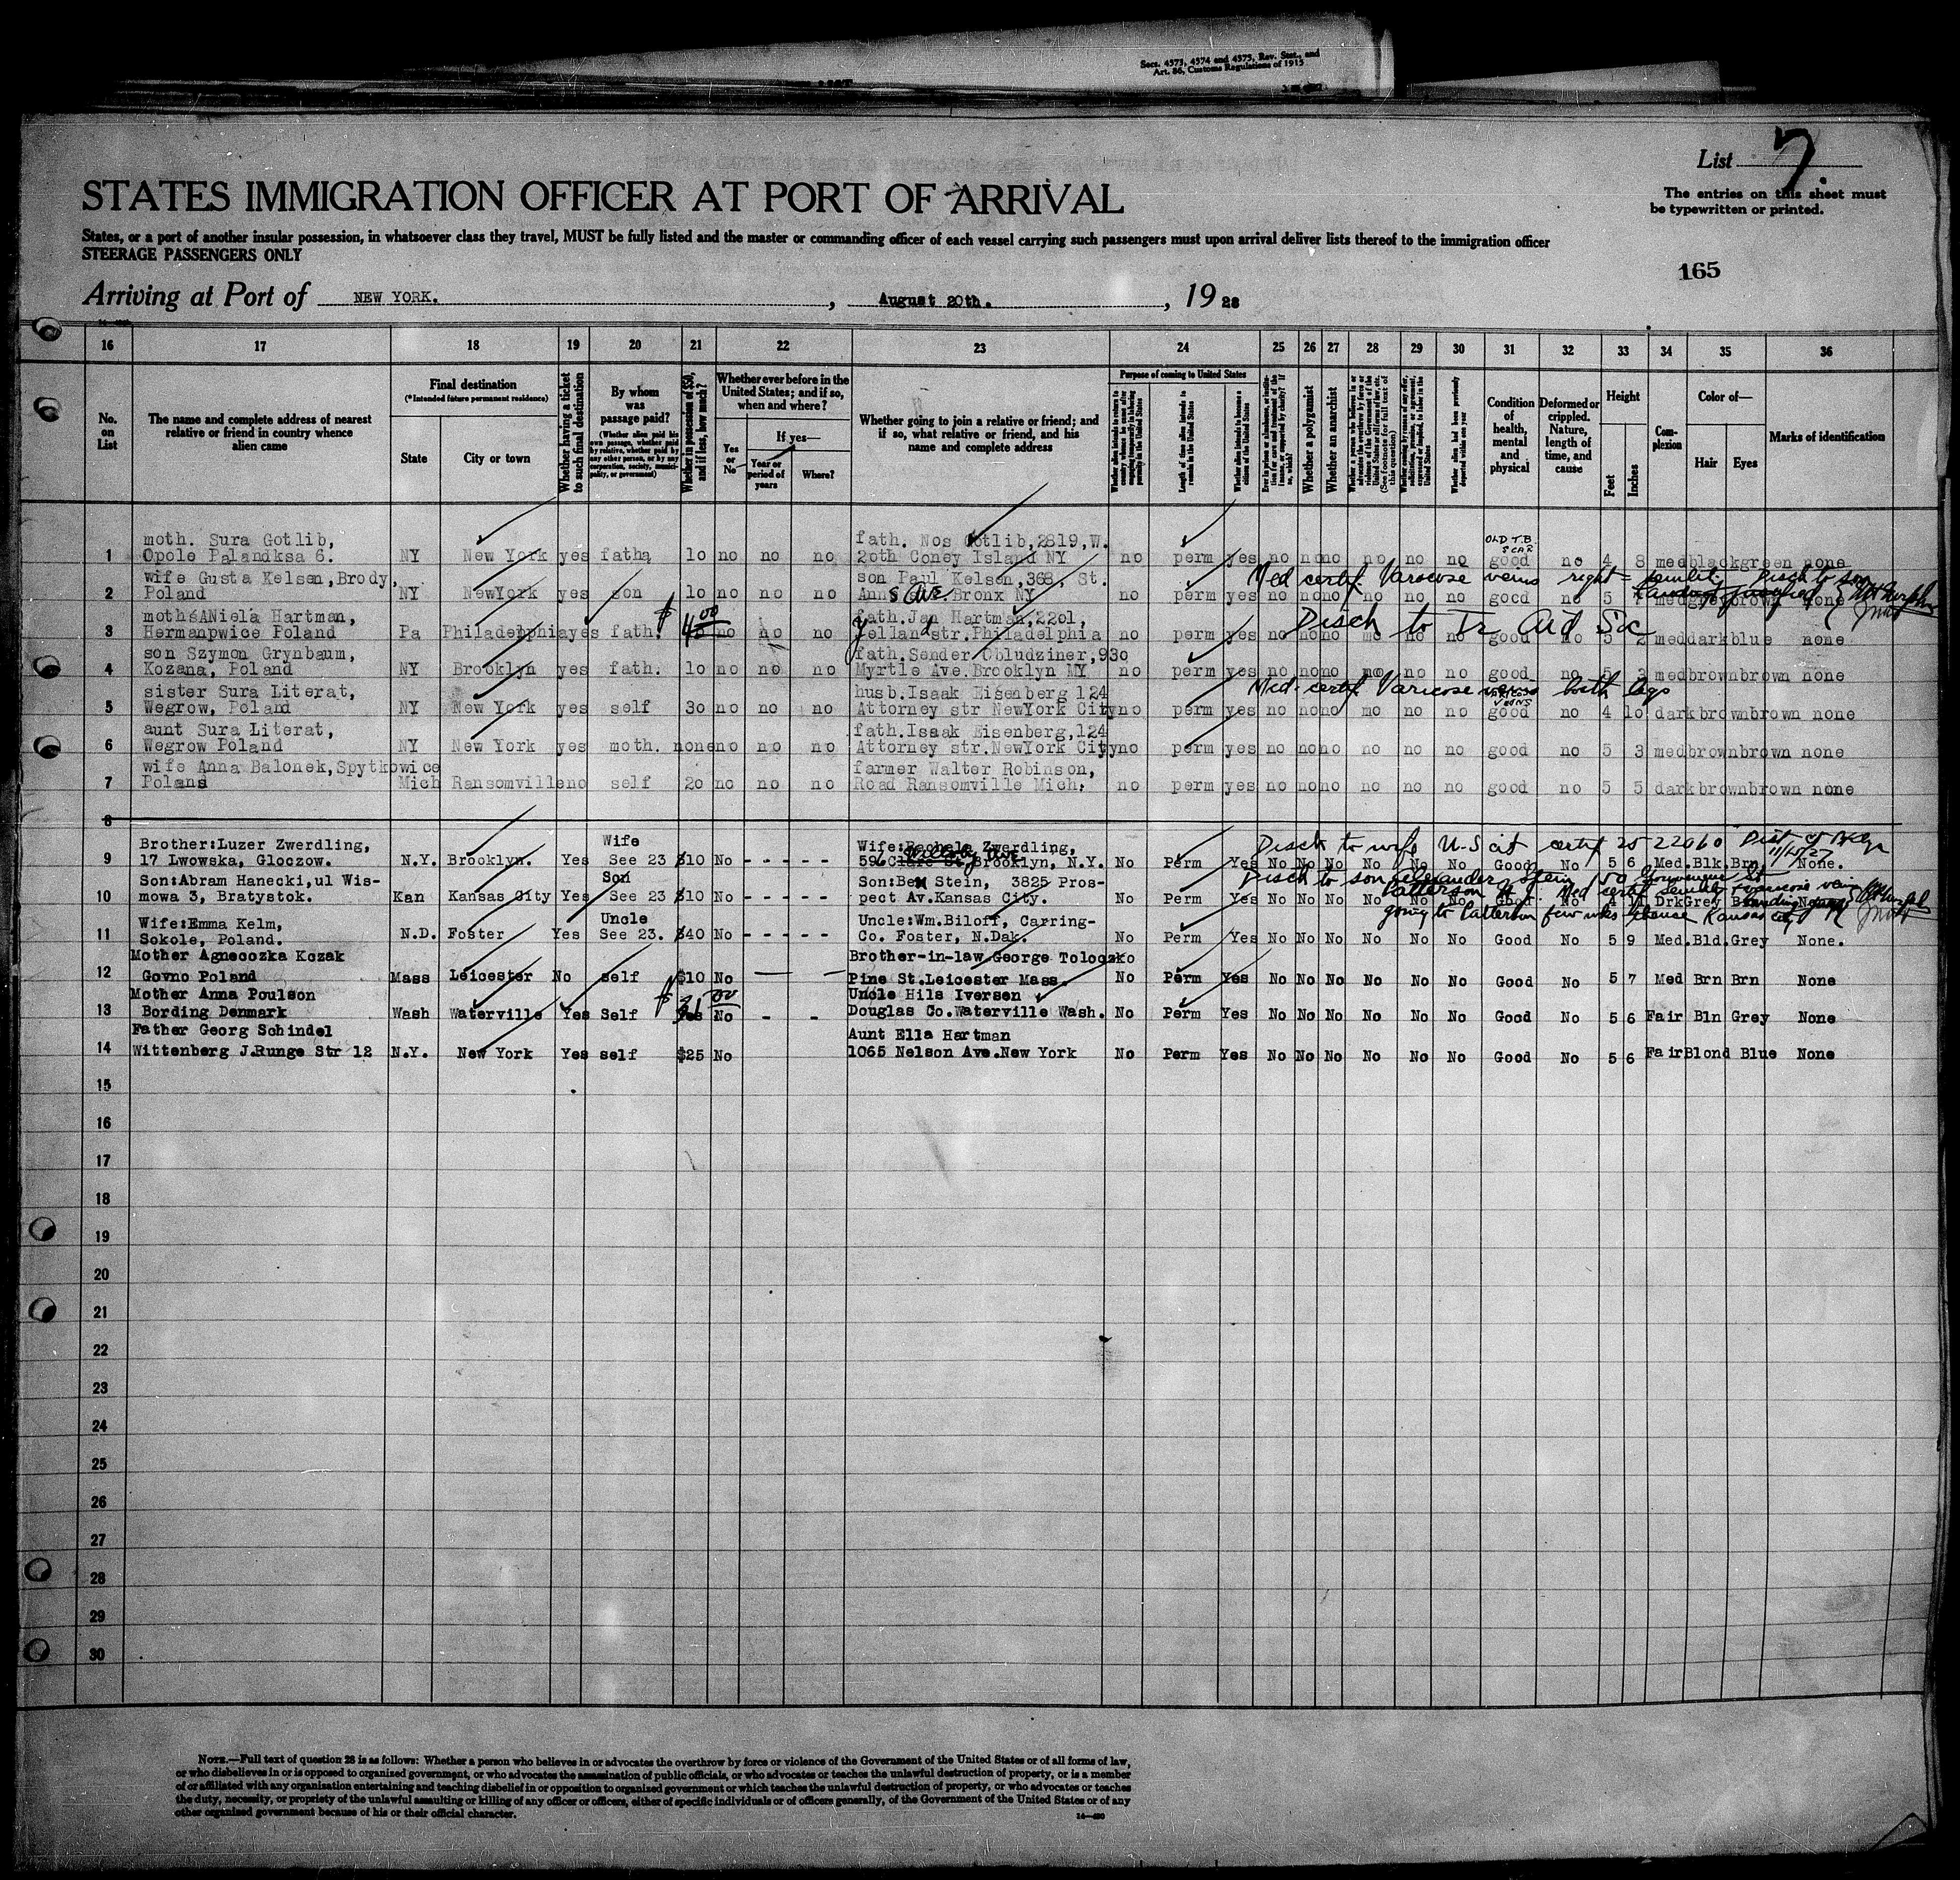 Secs. 4573, 4574 and 4575, Rev. Stat., and
Art. 86, Customs Regulations of 1915
List 7.
The entries on this sheet must
be typewritten or printed.
STATES IMMIGRATION OFFICER AT PORT OF ARRIVAL
States, or a port of another insular possession, in whatsoever class they travel, MUST be fully listed and the master or commanding officer of each vessel carrying such passengers must upon arrival deliver lists thereof to the immigration officer
STEERAGE PASSENGERS ONLY
165
Arriving at Port of NEW YORK. , August 20th. , 19 28
16 17 18 19 20 21 22 23 24 25 26 27 28 29 30 31 32 33 34 35 36
No. on List
The name and complete address of nearest relative or friend in country whence alien came
Final destination
(*Intended future permanent residence)
State
City or town
Whether having a ticket to such final destination
By whom was passage paid?
(Whether alien paid his own passage, whether paid by relative, whether paid by any other person, or by any corporation, society, municipality, or government)
Whether in possession of $50, and if less, how much?
Whether ever before in the United States; and if so, when and where?
Yes or No
If yes—
Year or period of years
Where?
Whether going to join a relative or friend; and if so, what relative or friend, and his name and complete address
Purpose of coming to United States
Length of time alien intends to remain in the United States
Whether alien intends to become a citizen of the United States
Whether a polygamist
Whether an anarchist
(See footnote for full text of this question)
Whether alien had been previously deported within one year
Condition of health, mental and physical
Deformed or crippled. Nature, length of time, and cause
Height
Feet
Inches
Complexion
Color of—
Hair
Eyes
Marks of identification
moth. Sura Gotlib, fath. Nos Gotlib,2819,W. OLD T.B. SCAR
1 Opole Palandksa 6. NY New York yes fath, 10 no no no 20th Coney Island NY no perm yes no no no no no no good no 4 8 med black green none
wife Gusta Kelsen,Brody, son Paul Kelsen,368, St. Med certif. Varicose veins right senility Disch to son
2 Poland NY NewYork yes son 10 no no no Anns Ave. Bronx NY no perm yes no no no no no no good no 5 med grey brown none
moth.ANiela Hartman, $40 00 fath.Jan Hartman,2201, Disch to Tr Aid Soc
3 Hermanpwice Poland Pa Philadelphia yes fath. no no no Jelland str.Philadelphia no perm yes no no no no good no 5 2 med dark blue none
son Szymon Grynbaum, fath.Sender Obludziner,930
4 Kozana, Poland NY Brooklyn yes fath. 10 no no no Myrtle Ave.Brooklyn NY no perm yes no no no no no no good no 5 3 med brown brown none
sister Sura Literat, husb.Isaak Eisenberg 124 Med-certif. Varicose veins both legs
5 Wegrow, Poland NY New York yes self 30 no no no Attorney str NewYork City no perm yes no no no no no no good no 4 10 dark brown brown none
aunt Sura Literat, fath.Isaak Eisenberg,124
6 Wegrow Poland NY New York yes moth. none no no no Attorney str.NewYork City no perm yes no no no no no no good no 5 3 med brown brown none
wife Anna Balonek,Spytkowice farmer Walter Robinson,
7 Polans Mich Ransomville no self 20 no no no Road Ransomville Mich. no perm yes no no no no no no good no 5 5 dark brown brown none
8
Brother:Luzer Zwerdling, Wife Wife:Rachela Zwerdling, Disch to wife U-S cit certif 25 22060 Dist of Bklyn 11/15/27
9 17 Lwowska, Gloczow. N.Y. Brooklyn. Yes See 23 $10 No - - - - - Brooklyn, N.Y. No Perm Yes No No No No No No Good No 5 6 Med. Blk. Brn. None.
Son:Abram Hanecki,ul Wis- Son Son:Ben Stein, 3825 Pros- Disch to son Alexander Stein 150 Gouverneur St
10 mowa 3, Bratystok. Kan Kansas City Yes See 23 $10 No - - - - - pect Av.Kansas City. No Perm Yes No No No No No No Good No 4 11 Drk Grey
Patterson N J. Med certif senility varicose veins
going to Patterson few wks thence Kansas City
Wife:Emma Kelm, Uncle Uncle:Wm.Biloff, Carring-
11 Sokole, Poland. N.D. Foster Yes See 23. $40 No - - - - - Co. Foster, N.Dak. No Perm Yes No No No No No No Good No 5 9 Med. Bld. Grey None.
Mother Agneoozka Kozak Brother-in-law George Toloczko
12 Govno Poland Mass Leicester No self $10 No Pine St.Leicester Mass. No Perm Yes No No No No No No Good No 5 7 Med Brn Brn None
Mother Anna Poulson $31 00 Uncle Hils Iversen
13 Bording Denmark Wash Waterville Yes Self Yes No - - Douglas Co.Waterville Wash. No Perm Yes No No No No No No Good No 5 6 Fair Bln Grey None
Father Georg Schindel Aunt Ella Hartman
14 Wittenberg J.Runge Str 12 N.Y. New York Yes self $25 No 1065 Nelson Ave.New York No Perm Yes No No No No No No Good No 5 6 Fair Blond Blue None
15
16
17
18
19
20
21
22
23
24
25
26
27
28
29
30
NOTE.—Full text of question 28 is as follows: Whether a person who believes in or advocates the overthrow by force or violence of the Government of the United States or of all forms of law,
or who disbelieves in or is opposed to organized government, or who advocates the assassination of public officials, or who advocates or teaches the unlawful destruction of property, or is a member
of or affiliated with any organization entertaining and teaching disbelief in or opposition to organized government or which teaches the unlawful destruction of property, or who advocates or teaches
the duty, necessity, or propriety of the unlawful assaulting or killing of any officer or officers, either of specific individuals or of officers generally, of the Government of the United States or of any
other organized government because of his or their official character.
14—480